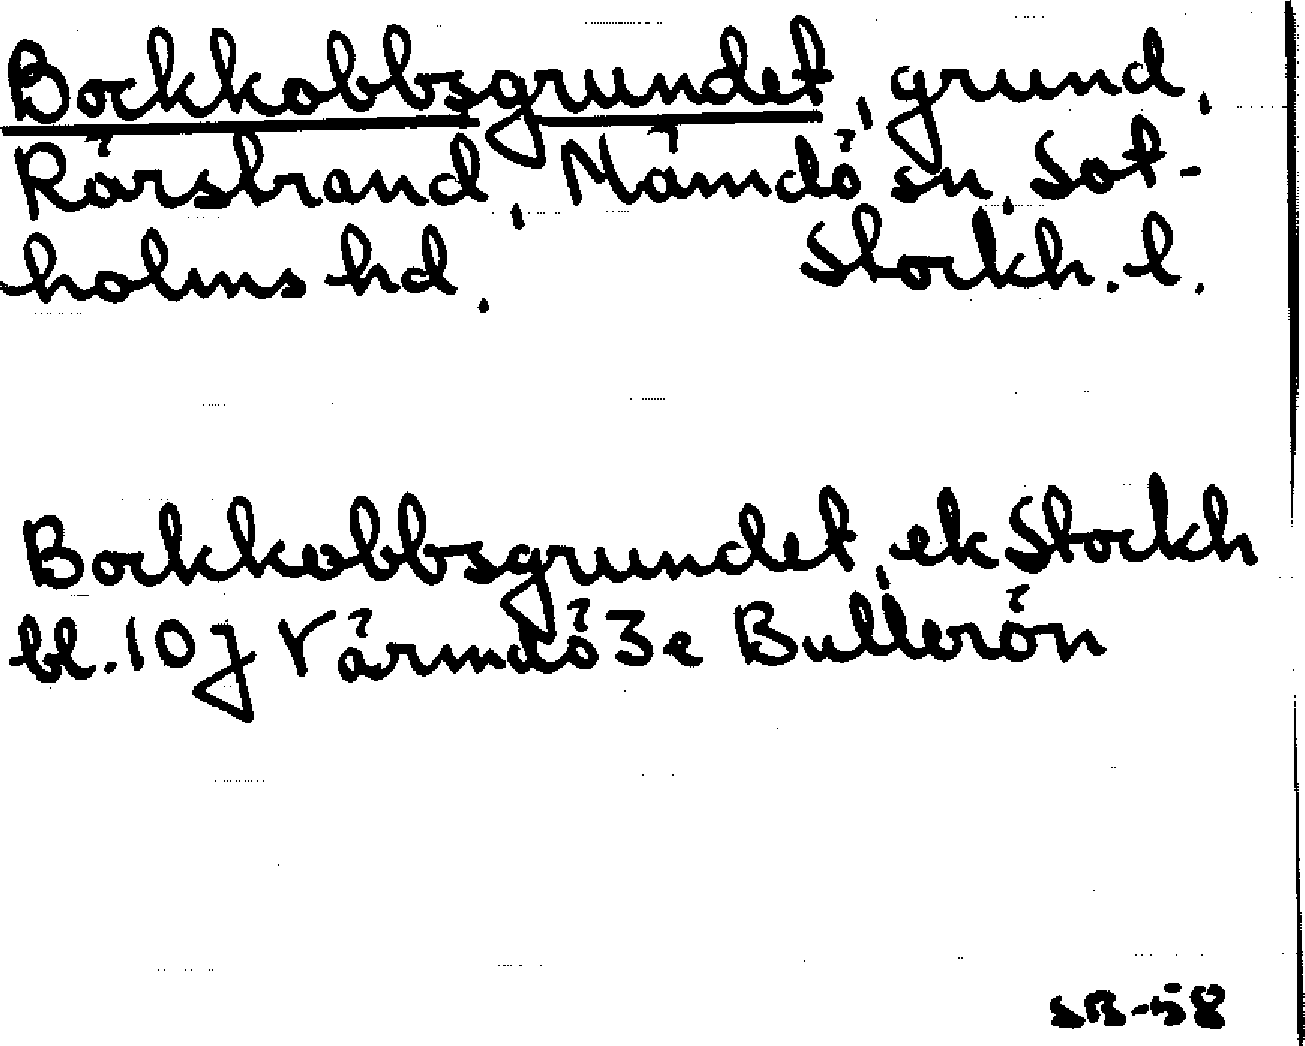 Bockkobbsgrundet, grund,
Rörsbrand, Nämdö sn, Sot-
holms hd. Stockh. l.
Bockkobbsgrundet, ek Stockh
bl. 10 j Värmdö 3 e Bullerön
SB-58